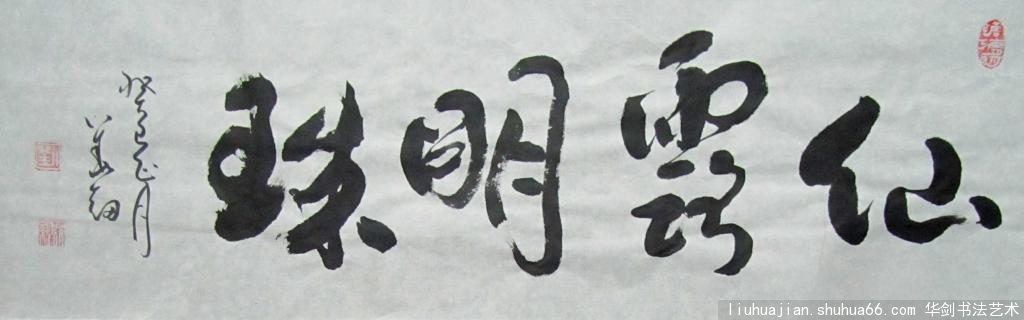 仙露明珠
癸巳正月
華釼
liuhuajian.shuhua66.com 华剑书法艺术